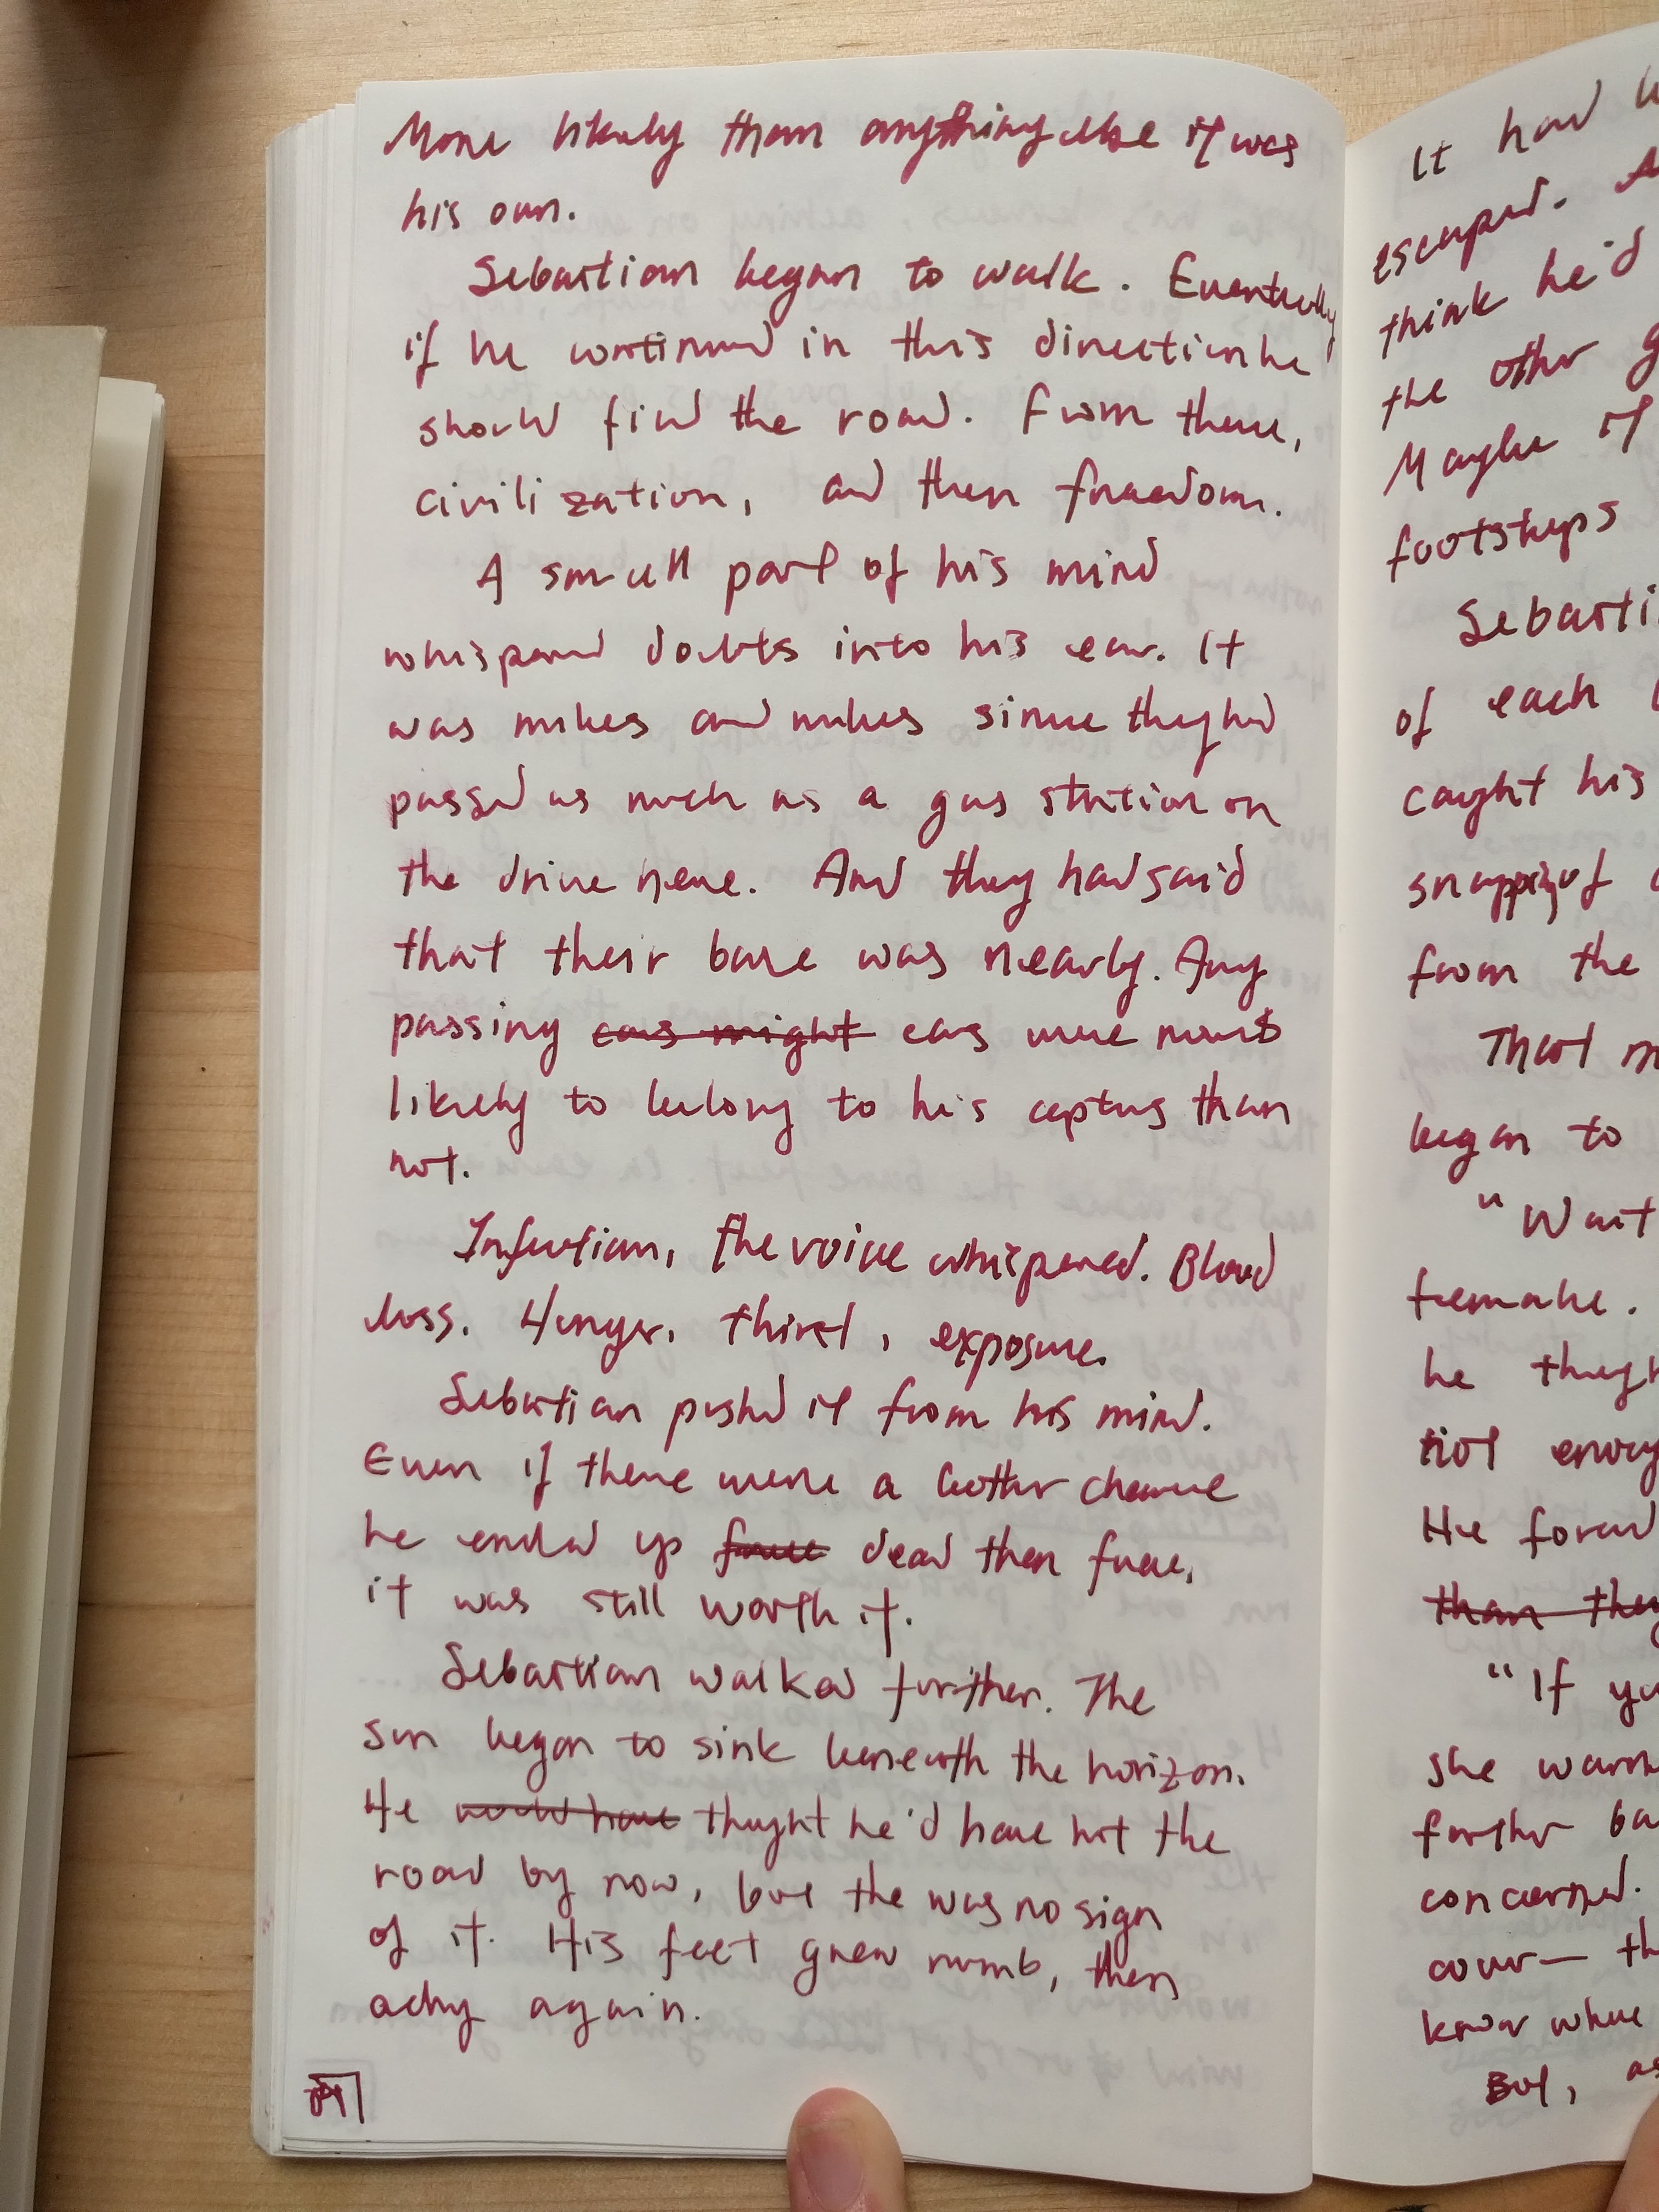 More likely than anything else it was
his own.
Sebastian began to walk. Eventually
if he continued in this direction he
should find the road. From there,
civilization, and then freedom.
A small part of his mind
whispered doubts into his ear. It
was miles and miles since they had
passed as much as a gas station on
the drive here. And they had said
that their base was nearly. Any
passing cars might cars were more
likely to belong to his captors than
not.
Infection, the voice whispered. Blood
loss. Hunger, thirst, exposure.
Sebastian pushed it from his mind.
Even if there were a better chance
he ended up free dead then free,
it was still worth it.
Sebastian walked further. The
sun began to sink beneath the horizon.
He would have thought he'd have hit the
road by now, but the was no sign
of it. His feet grew numb, then
achy again.
It had
escaped.
think he'd
the other
Maybe if
footsteps
Sebasti
of each
caught his
snapping of
from the
That
began to
"Wait
female.
he though
not enoug
He forced
than they
"If yo
she warn
further ba
concerned.
cover— th
know where
But, as